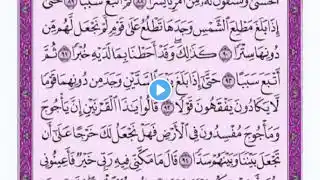 الحسنى وسنقول له من أمرنا يسرا ۝ ثم أتبع سببا ۝ حتى
إذا بلغ مطلع الشمس وجدها تطلع على قوم لم نجعل لهم من
دونها سترا ۝ كذلك وقد أحطنا بما لديه خبرا ۝ ثم
أتبع سببا ۝ حتى إذا بلغ بين السدين وجد من دونهما قوما
لا يكادون يفقهون قولا ۝ قالوا يذا القرنين إن يأجوج
ومأجوج مفسدون في الأرض فهل نجعل لك خرجا على أن
تجعل بيننا وبينهم سدا ۝ قال ما مكني فيه ربي خير فأعينوني